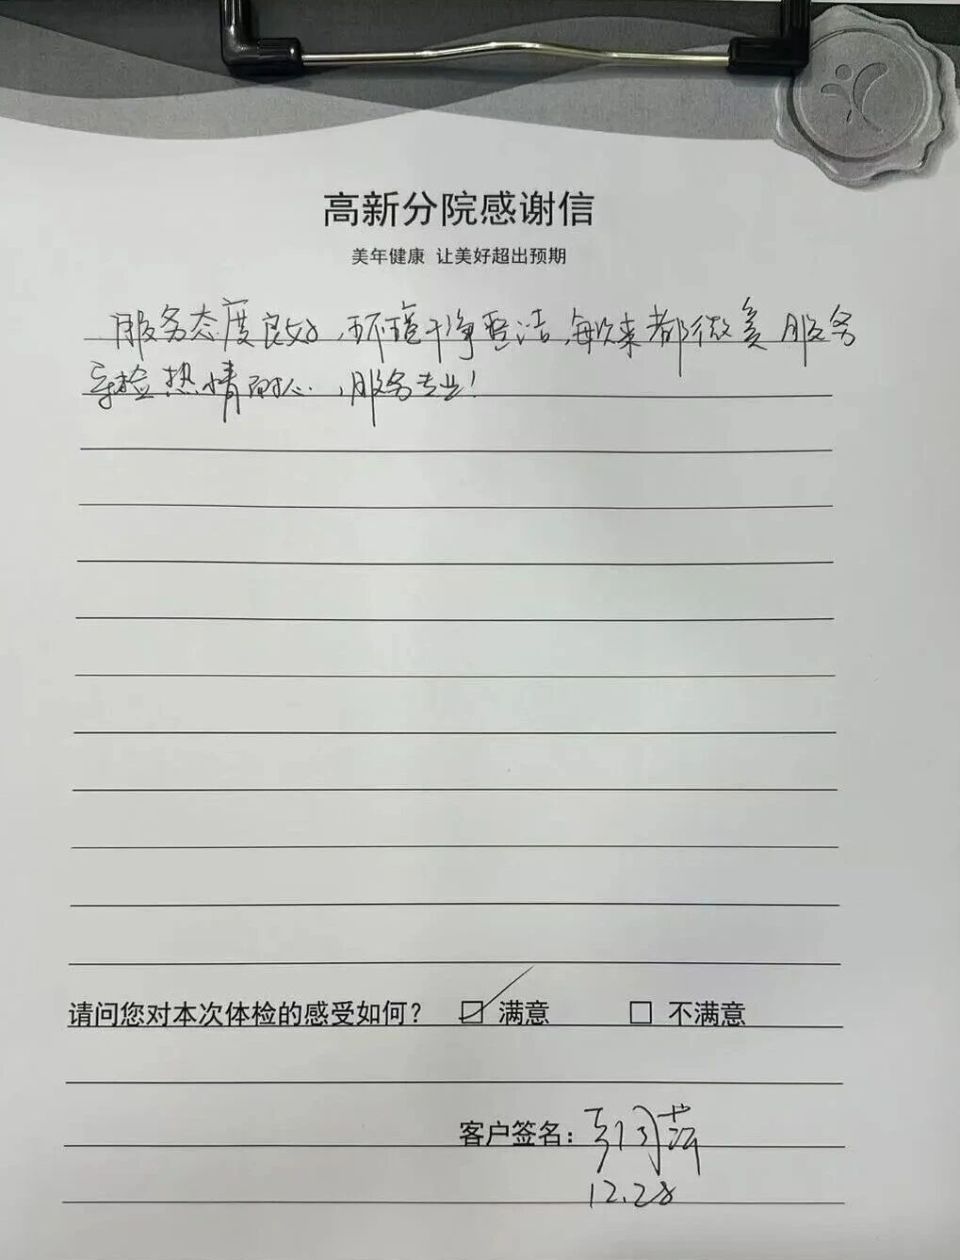 高新分院感谢信
美年健康 让美好超出预期
服务态度良好,环境干净整洁,每次来都微笑服务
导检热情耐心,服务专业!
请问您对本次体检的感受如何? ☑ 满意 □ 不满意
客户签名:
12.28